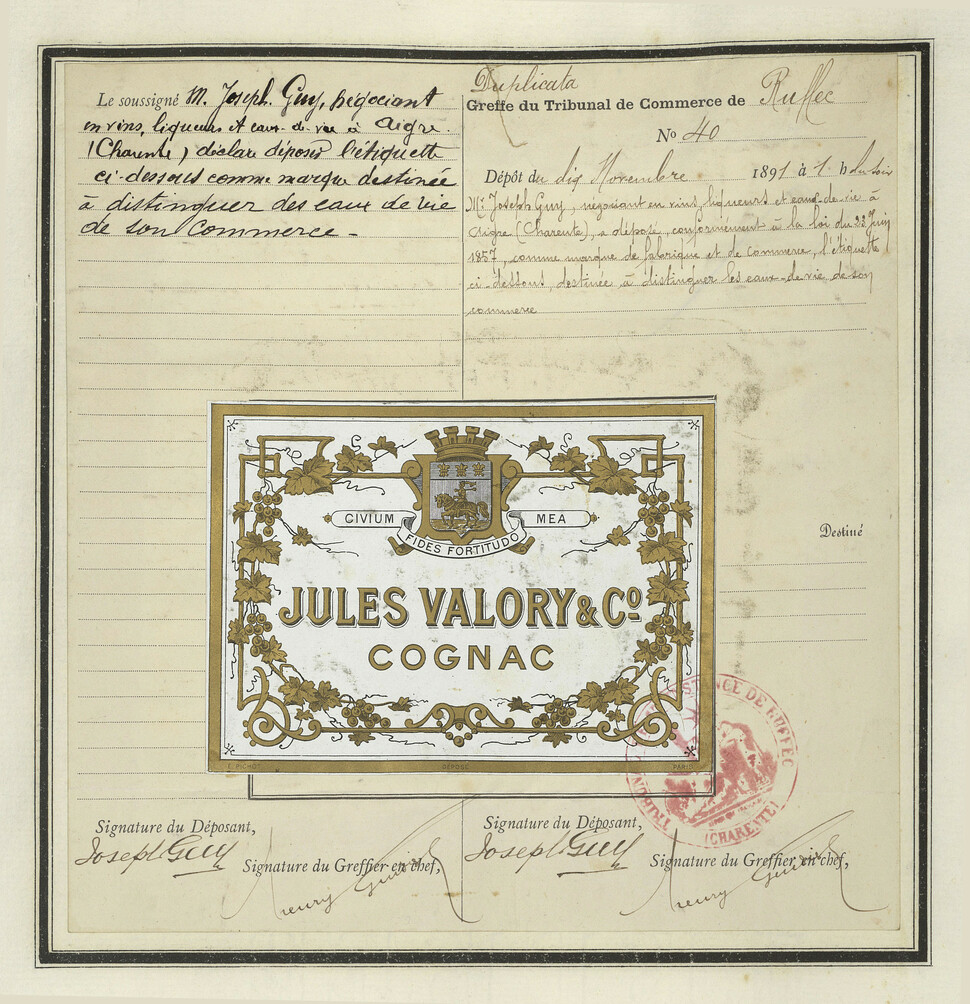 Le soussigné M. Joseph Guy, négociant
en vins, liqueurs et eaux-de-vie à Aigre
(Charente) déclare déposer l'étiquette
ci-dessous comme marque destinée
à distinguer des eaux de vie
de son commerce -
Duplicata
Greffe du Tribunal de Commerce de Ruffec
No 40
Dépôt du dix Novembre 1891 à 1 h du soir
Mr Joseph Guy, négociant en vins, liqueurs et eaux-de-vie à
Aigre (Charente), a déposé, conformément à la loi du 23 Juin
1857, comme marque de fabrique et de commerce, l'étiquette
ci-dessous, destinée à distinguer les eaux-de-vie de son
commerce
CIVIUM MEA
FIDES FORTITUDO
JULES VALORY & Co
COGNAC
E. PICHOT DÉPOSÉ PARIS
Destiné
INSTANCE DE RUFFEC
(CHARENTE)
Signature du Déposant,
Joseph Guy
Signature du Greffier en chef,
Signature du Déposant,
Joseph Guy
Signature du Greffier en chef,